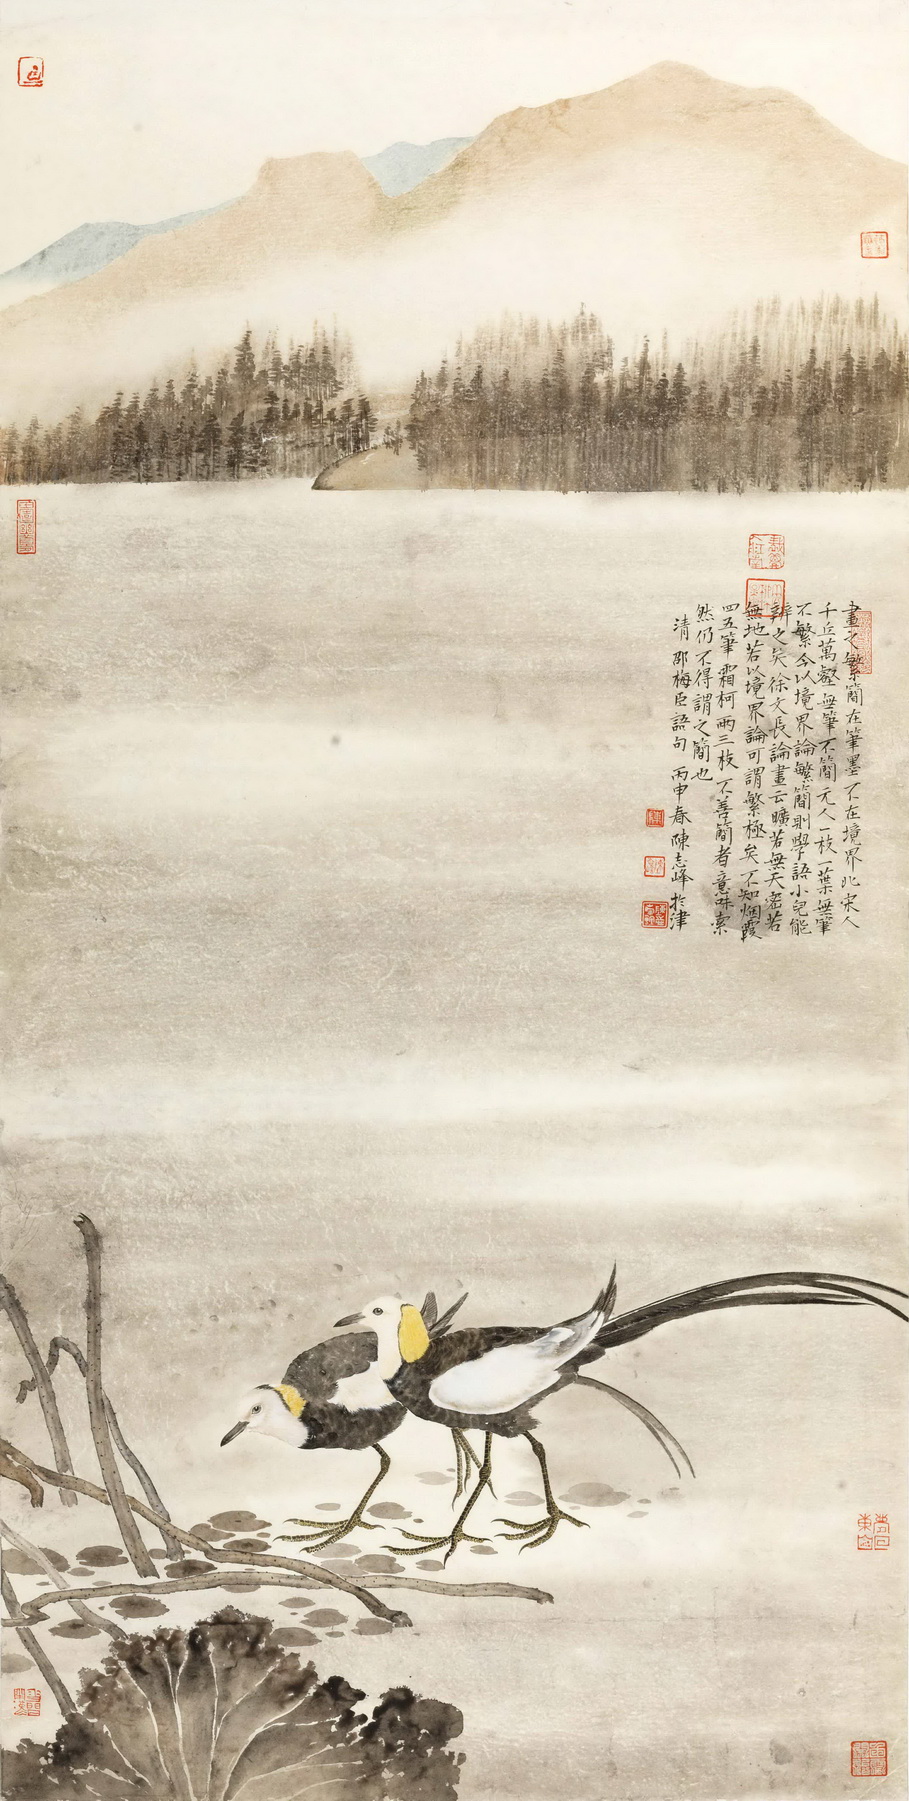 畫之繁簡在筆墨不在境界北宋人
千丘萬壑無筆不簡元人一枝一葉無筆
不繁今以境界論繁簡則學語小兒能
辨之矣徐文長論畫云曠若無天密若
無地若以境界論可謂繁極矣不知烟霞
四五筆霜柯兩三枝不善簡者意味索
然仍不得謂之簡也
清邵梅臣語句丙申春陳志峰於津